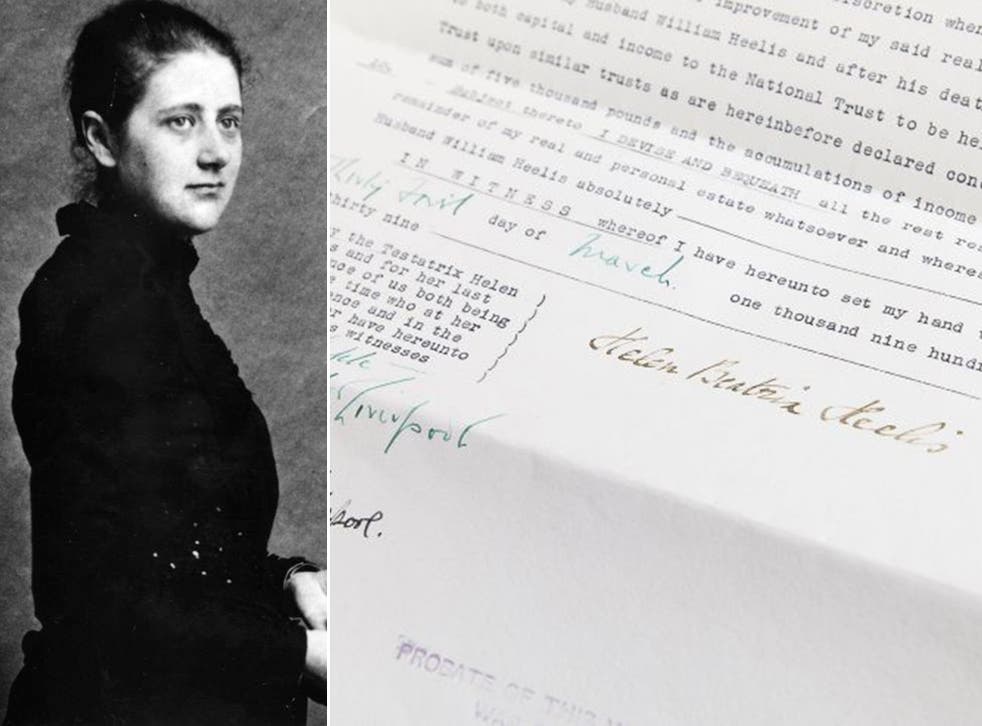 improvement of my said real
my Husband William Heelis and after his death
to both capital and income to the National Trust to be hel
Trust upon similar trusts as are hereinbefore declared conc
sum of five thousand pounds and the accumulations of income
Subject thereto I DEVISE AND BEQUEATH all the rest res
remainder of my real and personal estate whatsoever and wheres
Husband William Heelis absolutely
IN WITNESS whereof I have hereunto set my hand
day of March. one thousand nine hundr
thirty nine
y the Testatrix Helen
s and for her last
nce of us both being
time who at her
nce and in the
r have hereunto
s witnesses
Helen Beatrix Heelis
Liverpool
pool.
PROBATE OF THIS W